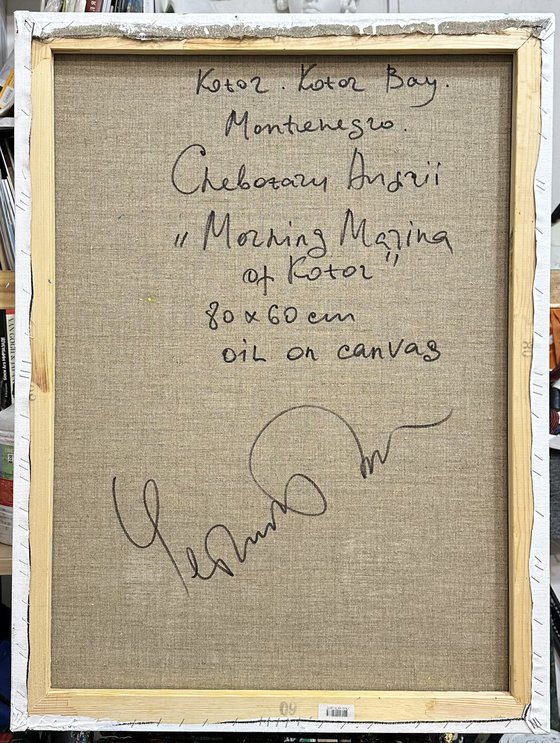 Kotor. Kotor Bay.
Montenegro.
Chebotaru Andrii
„Morning Marina
of Kotor”
80 x 60 cm
OIL on canvas
60